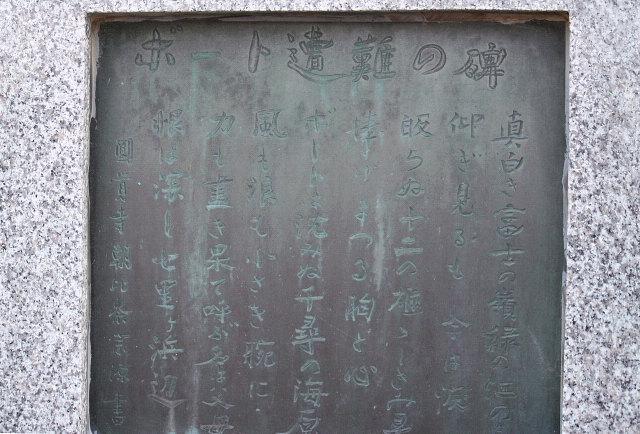 ボート遭難の碑
真白き富士の嶺緑の江の
仰ぎ見るも 今は涙
皈らぬ十二の雄々しきみ霊
捧げまつる胸と心
ボートは沈みぬ千尋の海原
風も浪も小さき腕に
力も盡き果て呼ぶ名は父母
恨は深し七里ヶ浜辺
圓覚寺朝比奈宗源書